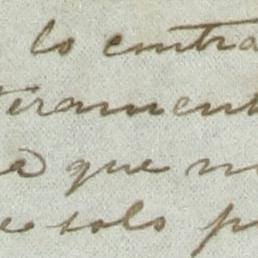 lo contra
terament
a que n
e solo p